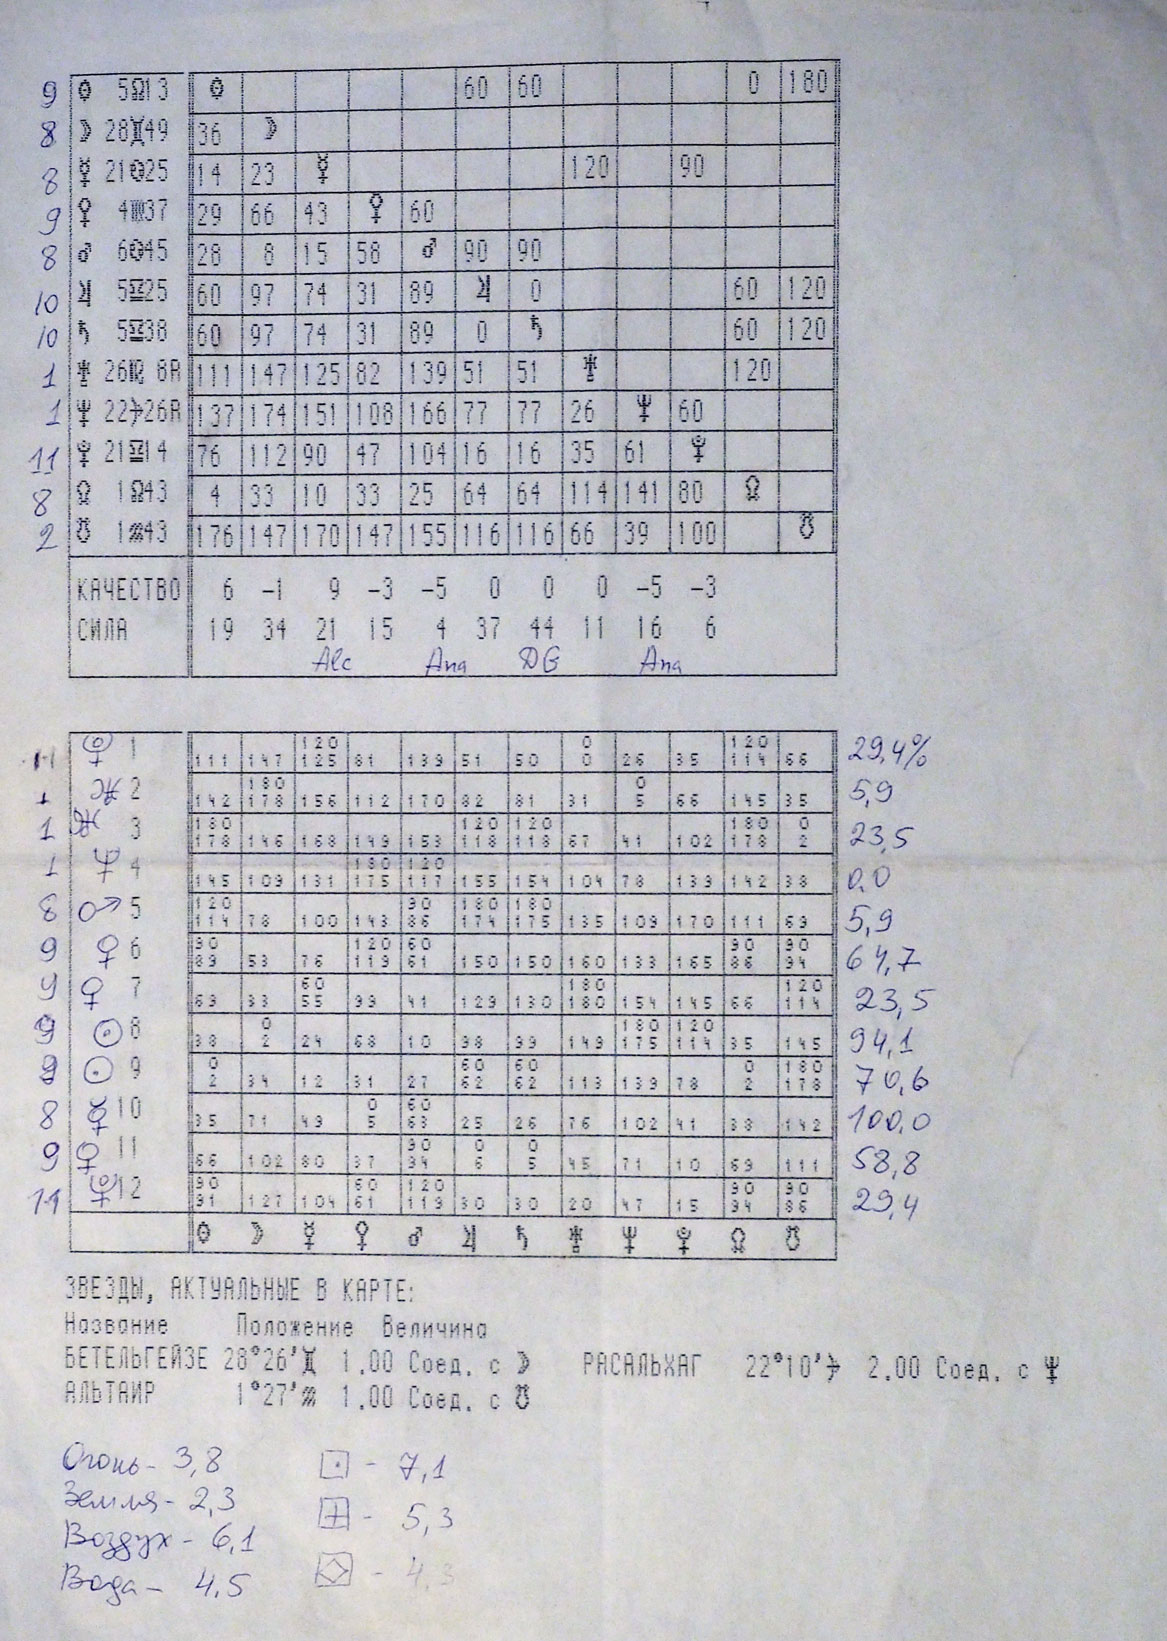 9 ☉ 5♌13 ☉ 60 60 0 180
8 ☽ 28♊49 36 ☽
8 ☿ 21♋25 14 23 ☿ 120 90
9 ♀ 4♍37 29 66 43 ♀ 60
8 ♂ 6♋45 28 8 15 58 ♂ 90 90
10 ♃ 5♎25 60 97 74 31 89 ♃ 0 60 120
10 ♄ 5♎38 60 97 74 31 89 0 ♄ 60 120
1 ♅ 26♏ 8R 111 147 125 82 139 51 51 ♅ 120
1 ♆ 22♐26R 137 174 151 108 166 77 77 26 ♆ 60
11 ♇ 21♎14 76 112 90 47 104 16 16 35 61 ♇
8 ☊ 1♌43 4 33 10 33 25 64 64 114 141 80 ☊
2 ☋ 1♒43 176 147 170 147 155 116 116 66 39 100 ☋
КАЧЕСТВО 6 -1 9 -3 -5 0 0 0 -5 -3
СИЛА 19 34 21 15 4 37 44 11 16 6
Alc Ana DG Ana
120 0 120
11 ♇ 1 111 147 125 81 139 51 50 0 26 35 114 66 29,4%
180 0
1 2 142 178 156 112 170 82 81 31 5 66 145 35 5,9
180 120 120 180 0
1 3 178 146 168 149 153 118 118 67 41 102 178 2 23,5
180 120
1 ♆ 4 145 109 131 175 117 155 154 104 78 139 142 38 0,0
120 90 180 180
8 ♂ 5 114 78 100 143 86 174 175 135 109 170 111 69 5,9
90 120 60 90 90
9 ♀ 6 89 53 76 119 61 150 150 160 133 165 86 94 64,7
60 180 120
9 ♀ 7 69 33 55 99 41 129 130 180 154 145 66 114 23,5
0 180 120
9 ☉ 8 38 2 24 68 10 98 99 149 175 114 35 145 94,1
0 60 60 0 180
9 ☉ 9 2 34 12 31 27 62 62 113 139 78 2 178 70,6
0 60
8 ☿ 10 35 71 49 5 63 25 26 76 102 41 38 142 100,0
90 0 0
9 ♀ 11 66 102 80 37 94 6 5 45 71 10 69 111 58,8
90 60 120 90 90
11 ♇ 12 91 127 104 61 119 30 30 20 47 15 94 86 29,4
☉ ☽ ☿ ♀ ♂ ♃ ♄ ♅ ♆ ♇ ☊ ☋
ЗВЕЗДЫ, АКТУАЛЬНЫЕ В КАРТЕ:
Название Положение Величина
БЕТЕЛЬГЕЙЗЕ 28°26'♊ 1.00 Соед. с ☽ РАСАЛЬХАГ 22°10'♐ 2.00 Соед. с ♆
АЛЬТАИР 1°27'♒ 1.00 Соед. с ☋
Огонь - 3,8 - 7,1
Земля - 2,3 - 5,3
Воздух - 6,1
Вода - 4,5 - 4,3